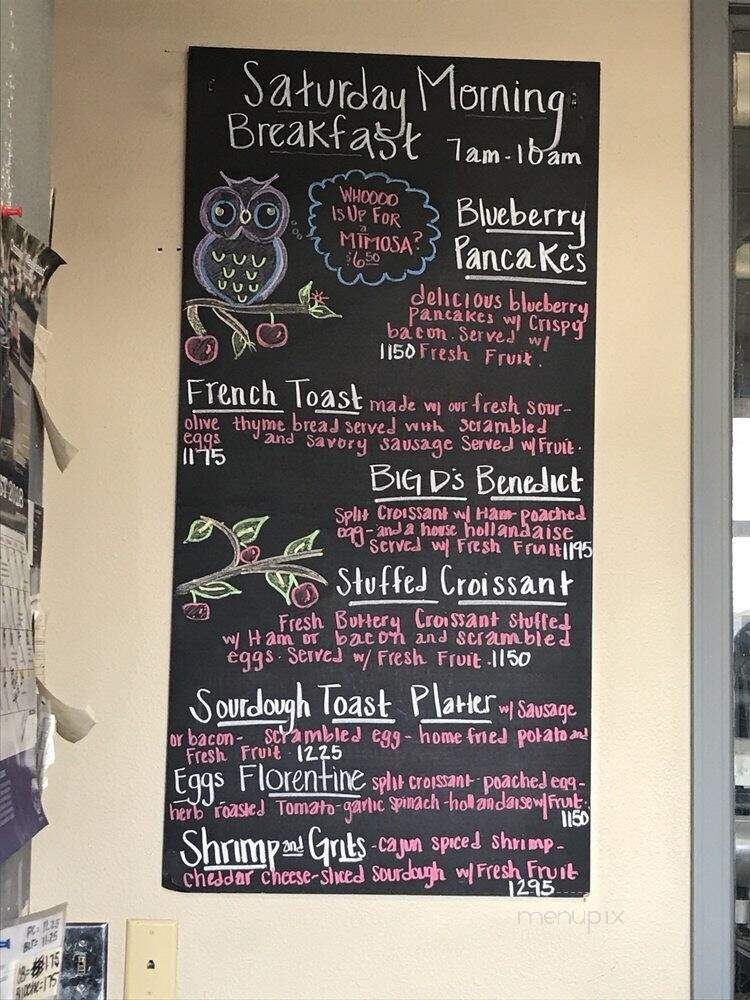 Saturday Morning
Breakfast 7am-10am
WHOOOO
IS UP FOR
a
MIMOSA?
$6.50
Blueberry
Pancakes
delicious blueberry
pancakes w/ Crispy
bacon. Served w/
1150 Fresh Fruit.
French Toast made w/ our fresh sour-
olive thyme bread served with scrambled
eggs and savory sausage Served w/ Fruit.
1175
BIG D's Benedict
Split Croissant w/ Ham-poached
egg-and a house hollandaise
Served w/ Fresh Fruit 1195
Stuffed Croissant
Fresh Buttery Croissant stuffed
w/ Ham or bacon and scrambled
eggs. Served w/ Fresh Fruit. 1150
Sourdough Toast Platter w/ Sausage
or bacon- scrambled egg-home fried potato and
Fresh Fruit. 1225
Eggs Florentine split croissant-poached egg-
herb roasted Tomato-garlic spinach-hollandaise w/ Fruit.
1150
Shrimp and Grits -cajun spiced shrimp-
cheddar cheese-sliced sourdough w/ Fresh Fruit
1295
menupix